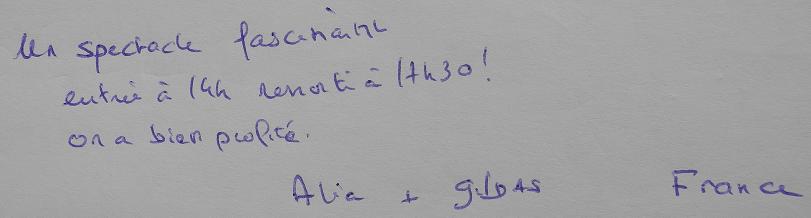 Un spectacle fascinant
entrée à 14h ressorti à 17h30!
on a bien profité.
Alia + gildas France